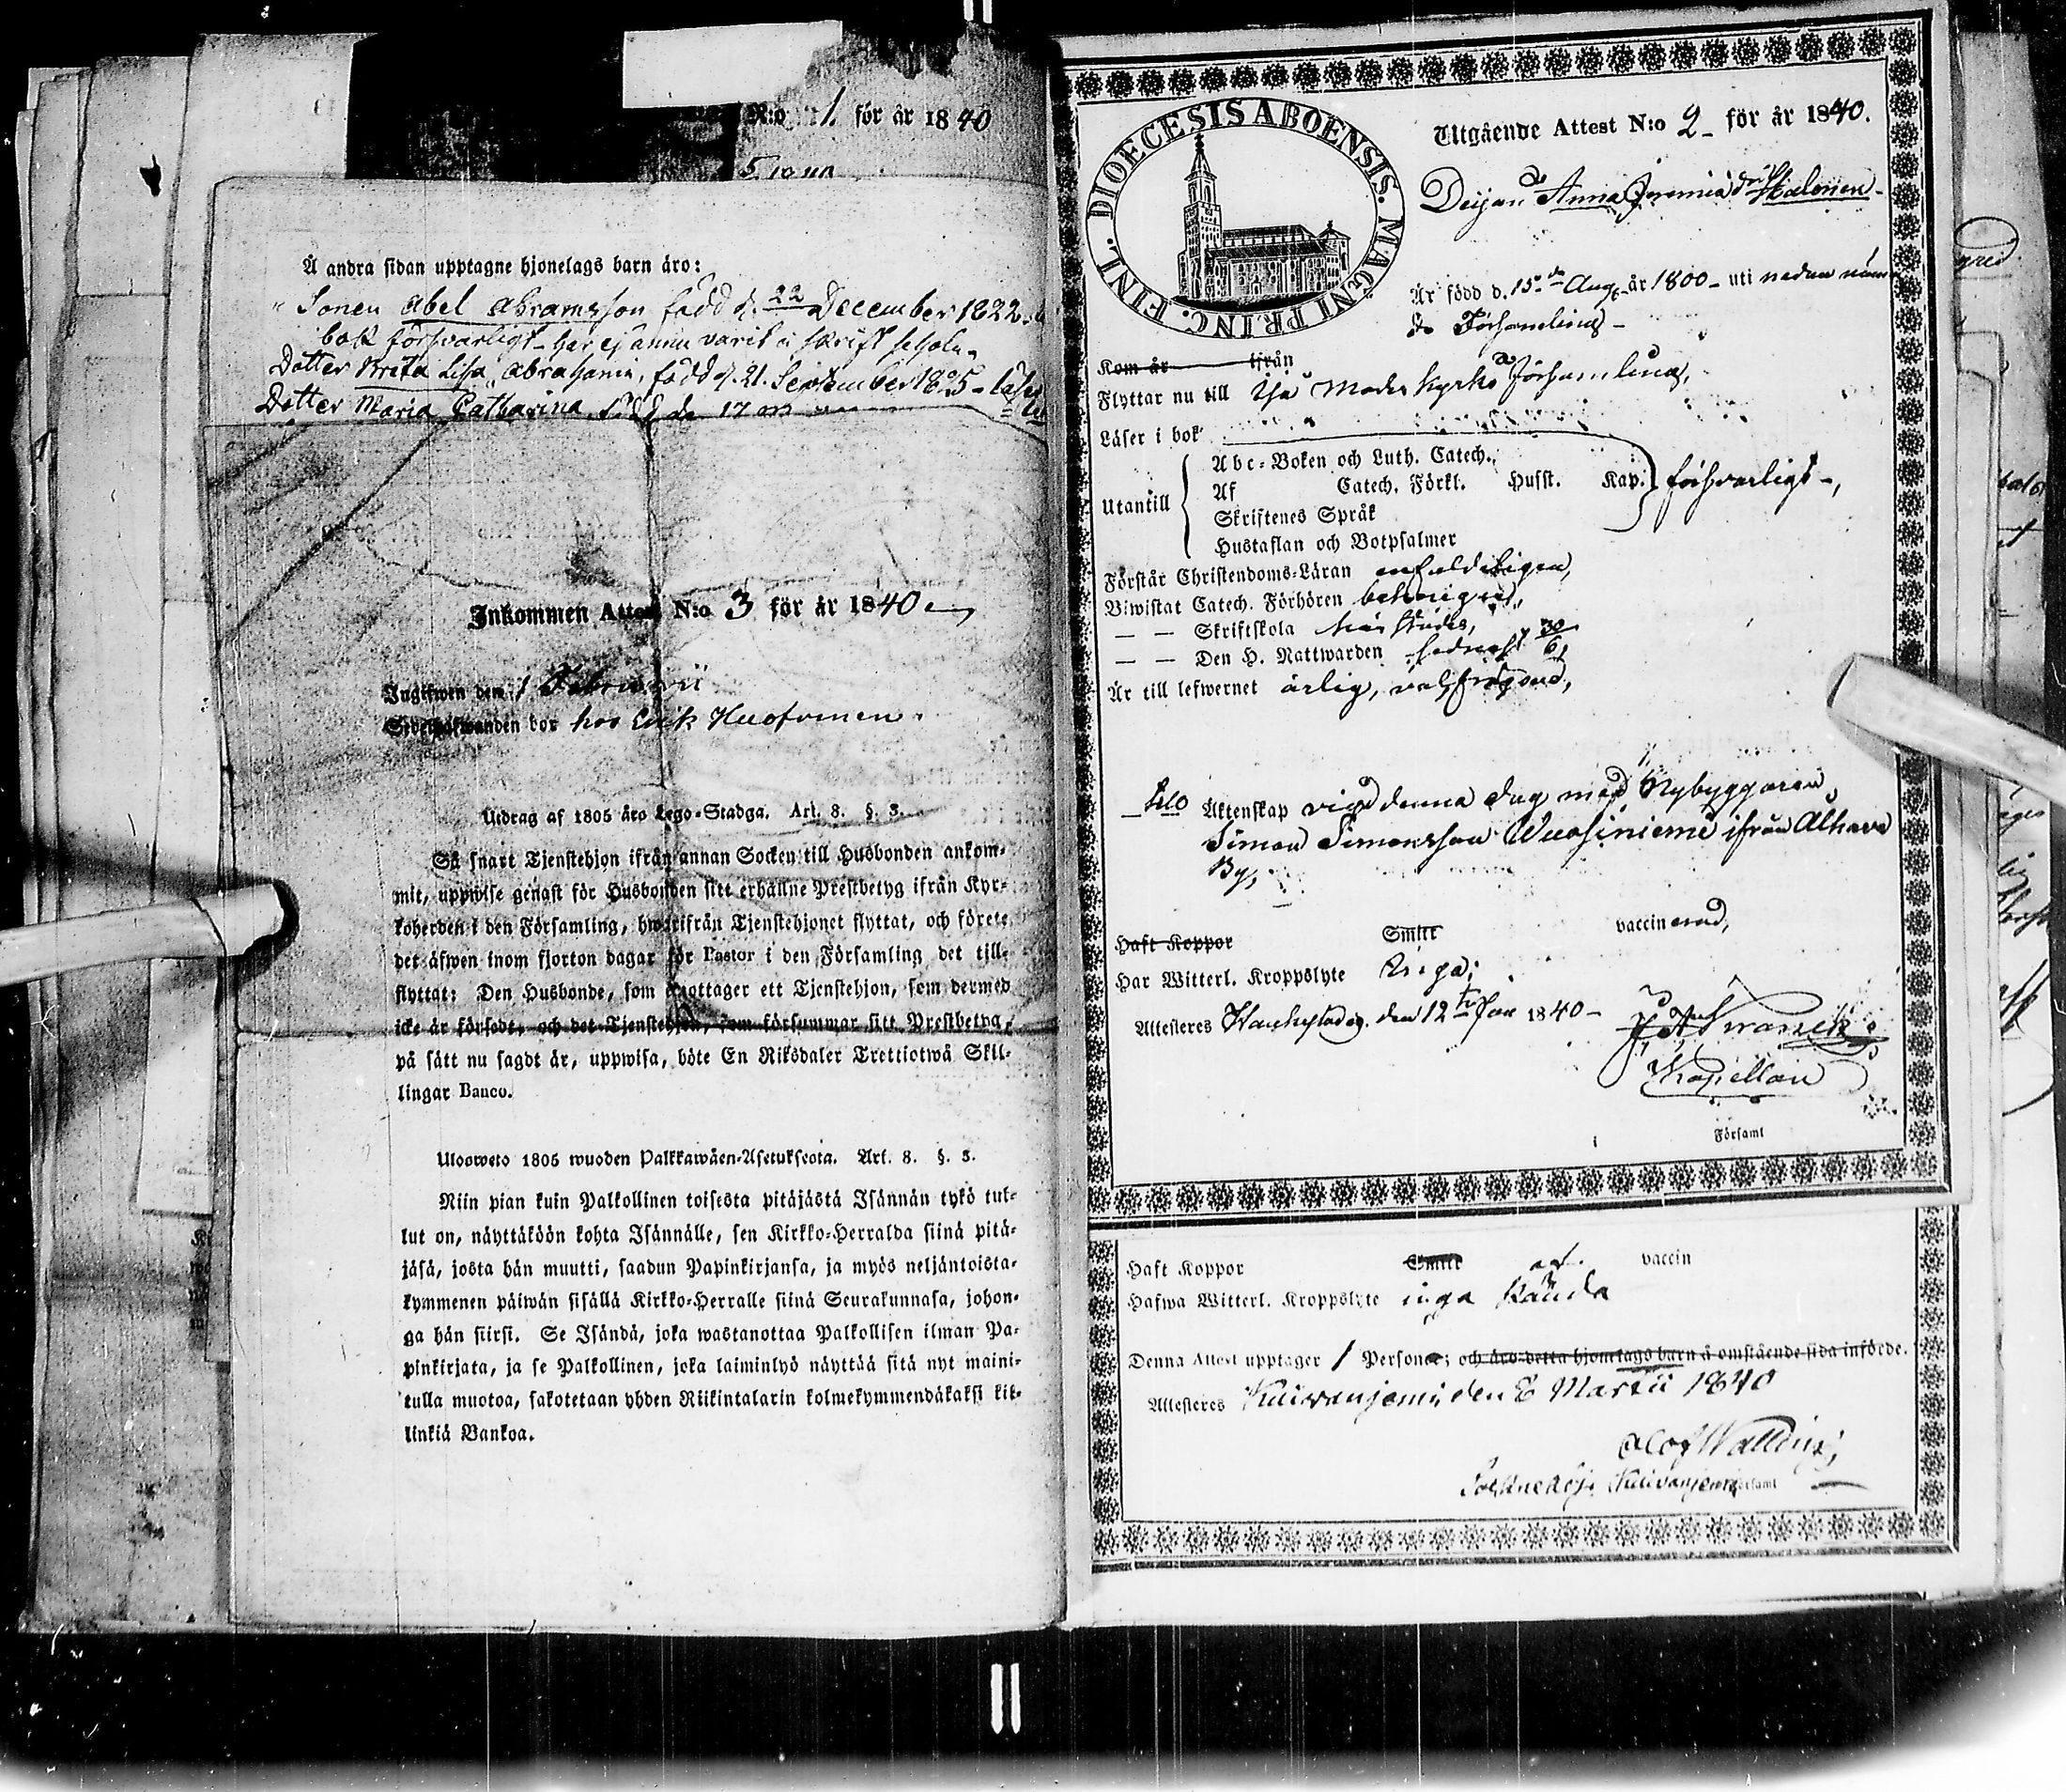 N:o 1 för år 1840
Å andra sidan upptagne hjonelags barn äro:
Sonen Abel Abramsson född d. 22 December 1822.
bok försvarligt har ej ännu varit i skrift schola.
Dotter Breta Lisa Abrahami, född d. 21. September 1825 - läser
Dotter Maria Catharina född de 17
Inkommen Attest N:o 3 för år 1840
Ingifwen den 1 Februarii
Sedelhafwanden bor hos Erik Huofvinen.
Utdrag af 1805 års Lego-Stadga. Art. 8. §. 3.
Så snart Tjenstehjon ifrån annan Socken till Husbonden ankom-
mit, uppwise genast för Husbonden sitt erhållne Prestbetyg ifrån Kyr-
koherden i den Församling, hwarifrån Tjenstehjonet flyttat, och förete
det äfwen inom fjorton dagar för Pastor i den Församling det till-
flyttat: Den Husbonde, som emottager ett Tjenstehjon, som dermed
icke är försedt, och det Tjenstehjon, som försummar sitt Prestbetyg,
på sätt nu sagdt är, uppwisa, böte En Riksdaler Trettiotwå Skil-
lingar Banco.
Uloswеto 1805 wuoden Palkkawäen-Asetuksesta. Art. 8. §. 3.
Niin pian kuin Palkollinen toisesta pitäjästä Isännän tykö tul-
lut on, näyttäköön kohta Isännälle, sen Kirkko-Herralda siinä pitä-
jäsä, josta hän muutti, saadun Papinkirjansa, ja myös neljäntoista-
kymmenen päiwän sisällä Kirkko-Herralle siinä Seurakunnasa, johon-
ga hän siirsi. Se Isändä, joka wastanottaa Palkollisen ilman Pa-
pinkirjata, ja se Palkollinen, joka laiminlyö näyttää sitä nyt maini-
tulla muotoa, sakotetaan yhden Riikintalarin kolmekymmendäkaksi kil-
linkiä Bankoa.
DIOECESIS ABOENSIS. MAGNI PRINC. FINL.
Utgående Attest N:o 2 för år 1840.
Deijan Anna Jeremiædr Halonen
Är född d. 15de Aug. år 1800 - uti nedan nämn
de Församling
Kom år ifrån
Flyttar nu till Ijå Moder Kyrko Församling,
Läser i bok
Utantill
Abc-Boken och Luth. Catech.
Af Catech. Förkl. Husst. Kap. försvarligt,
Skriftenes Språk
Hustaflan och Botpsalmer
Förstår Christendoms-Läran enfaldeligen,
Biwistat Catech. Förhören behörigen,
— — Skriftskola
— — Den H. Nattwarden sednast 30/6
Är till lefwernet ärlig, välfrägdad,
Till Äktenskap vigd denna dag med Nybyggaren
Simon Simonsson Wuosiniemi ifrån Alhava
By,
Haft Koppor Smitt vaccinerad,
Har Witterl. Kroppslyte Inga;
Attesteres Haukipudas, den 12te Jan 1840 -
Kapellan
i Församl
Haft Koppor Smitt af vaccin
Hafwa Witterl. Kroppslyte inga kända
Denna Attest upptager 1 Person; och äro detta hjonelags barn å omstående sida införde.
Attesteres Kuivaniemi den 8 Martii 1840
Olof Walling;
Kuivaniemi Församl